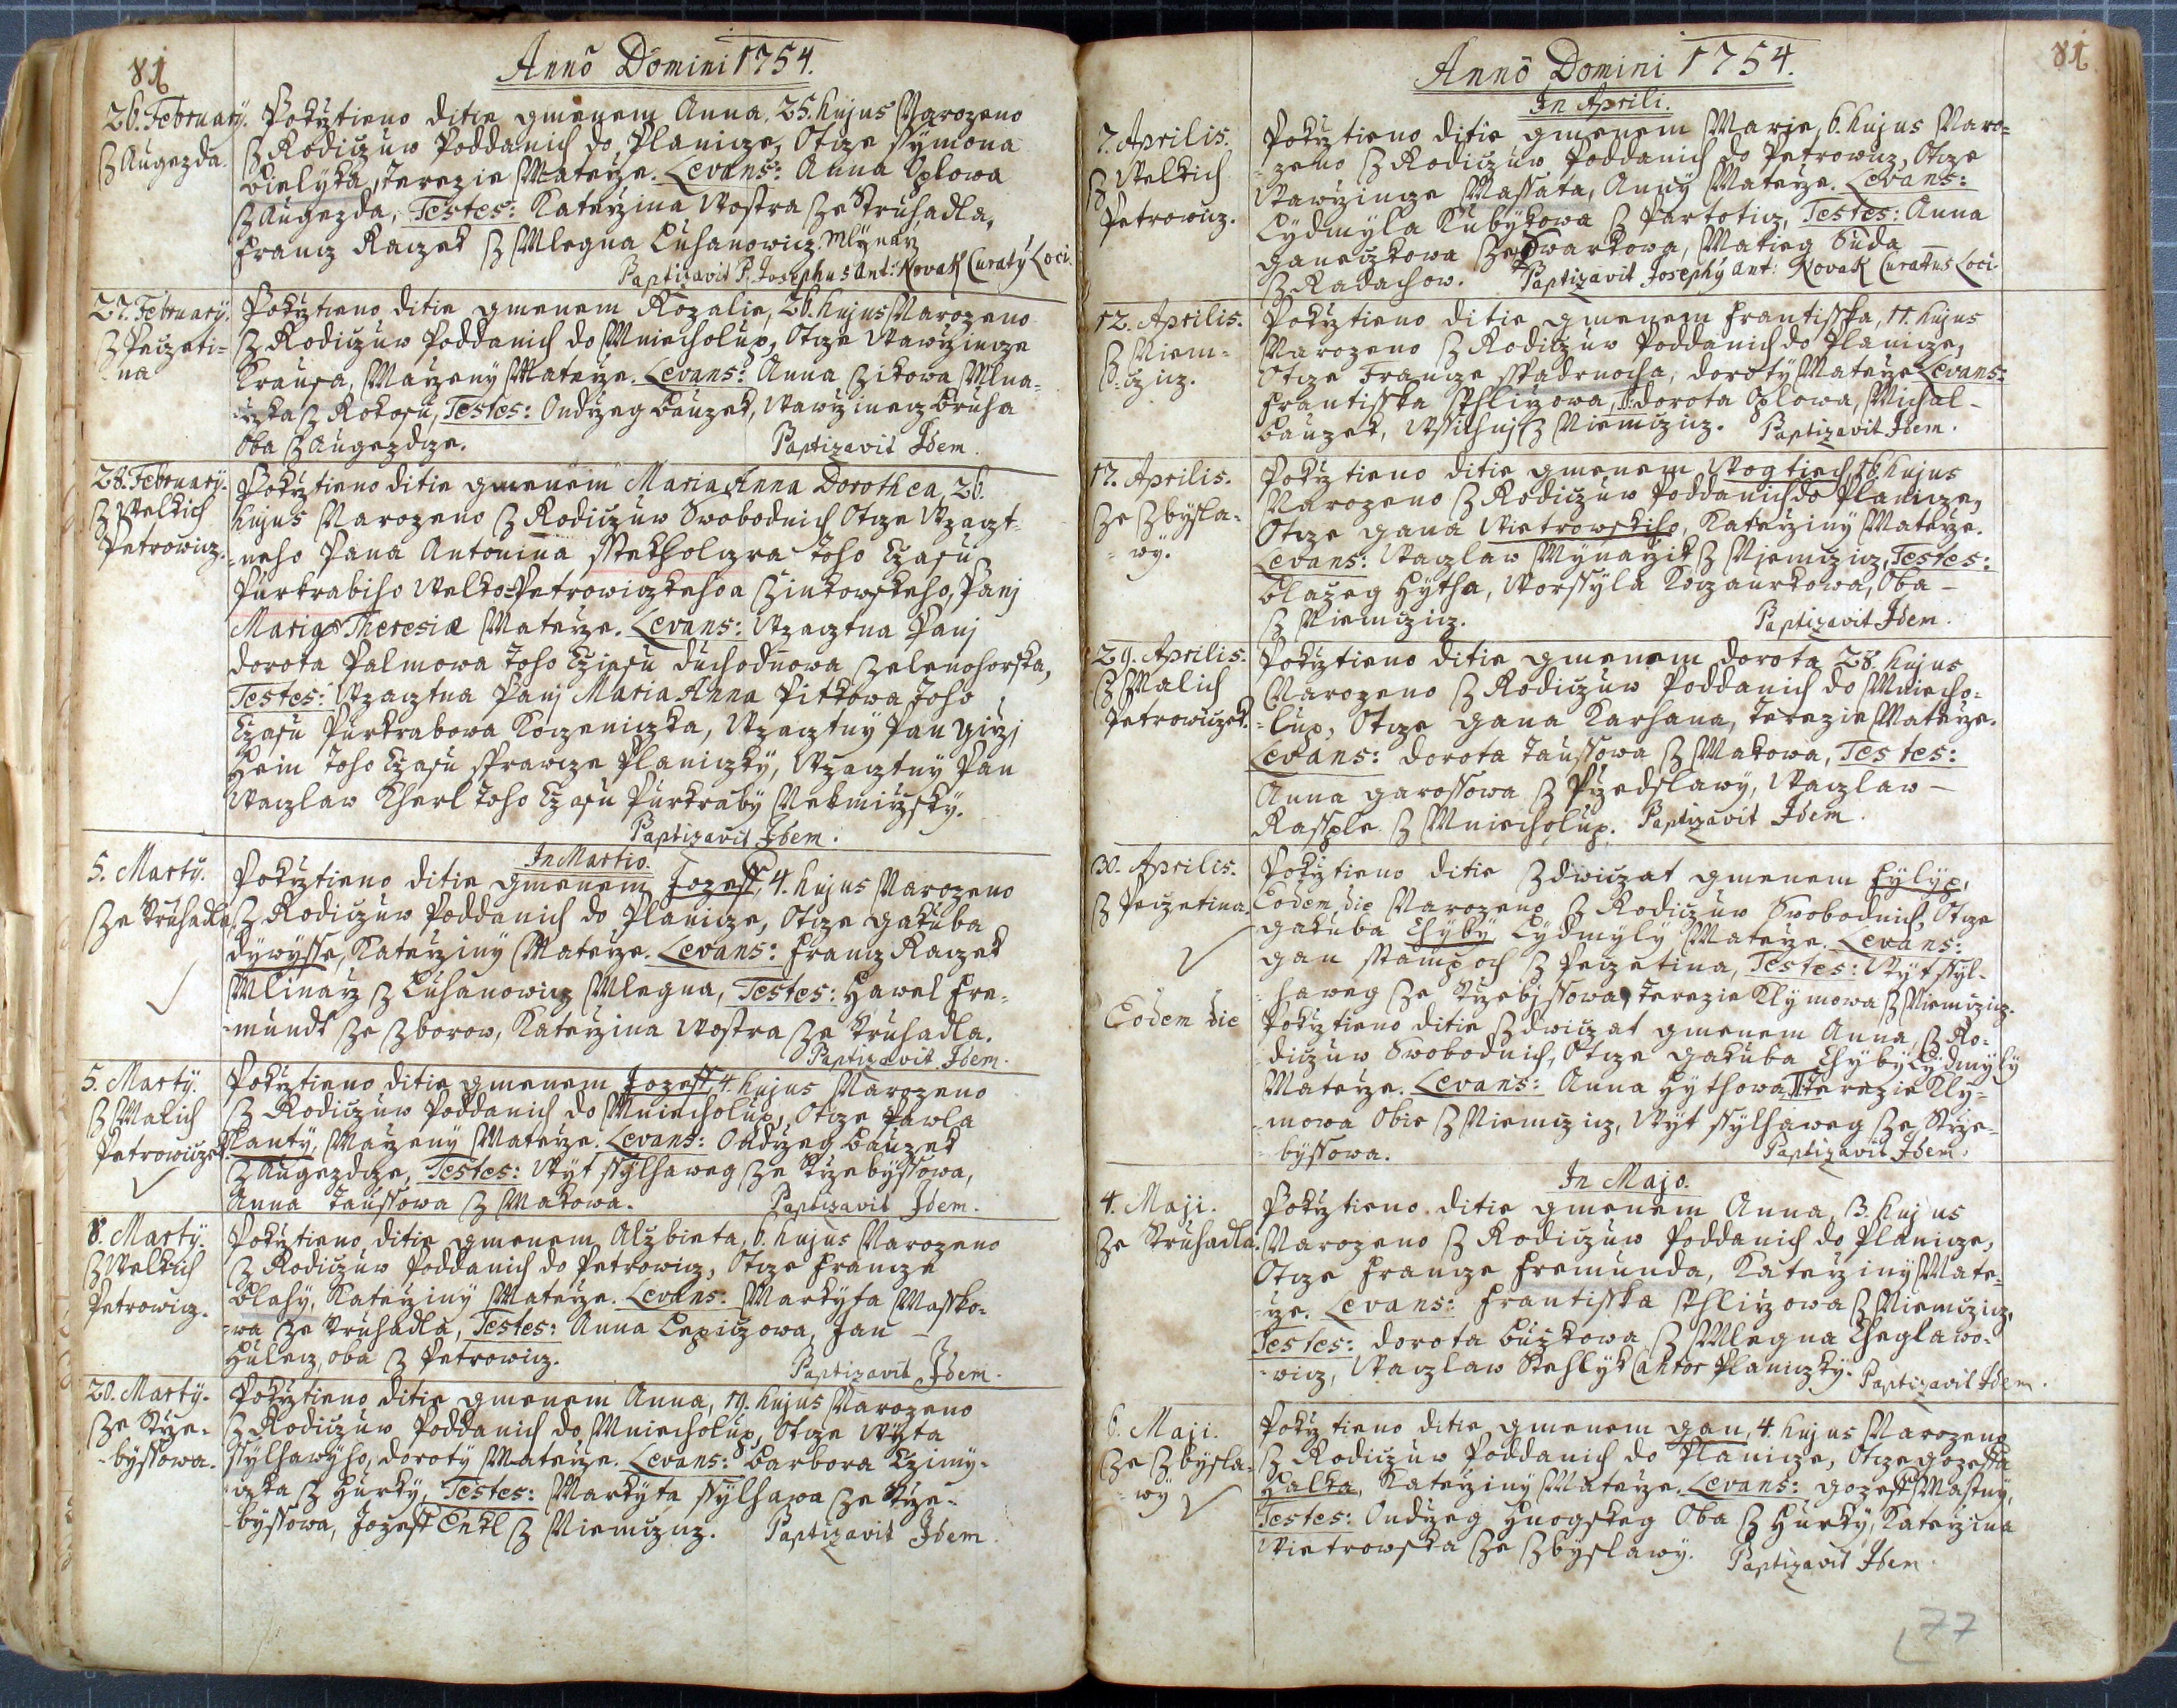 81
Anno Domini 1754.
26. February.
z Augezda.
Pokrztieno ditie gmenem Anna, 25. hujus Narozeno
z Rodiczuw Poddanich do Planicze, Otcze Ssymona
Bielyka, Terezie Materze. Levans: Anna Oplowa
z Augezda, Testes: Katerzina Wostra ze Struhadla,
Francz Raczek z Mlegna Luhanowicz Mlynarz
Paptizavit P. Josephus Ant: Novak Curatý Loci.
27. February.
z Peczeti=
na
Pokrztieno ditie gmenem Rozalie, 26. hujus Narozeno
z Rodiczuw Poddanich do Mniecholup, Otcze Wawrzincze
Krausa, Marzeny Materze. Levans: Anna Zikowa Mlna=
rzka z Kokosu, Testes: Ondrzeg Bauzek, Wawrzinecz Bruha
Oba z Augezdcze. Paptizavit Idem.
28. February.
z Welkich
Petrowicz.
Pokrztieno ditie gmenem Maria Anna Dorothea, 26.
hujus Narozeno z Rodiczuw Swobodnich Otcze Wzaczt=
neho Pana Antonina Stekholczra Toho Czasu
Purkrabiho Welko=Petrowiczkeho a Zinkowskeho, Panj
Mariæ Theresiæ Materze. Levans: Wzacztna Panj
Dorota Palmowa Toho Czasu Duchodnowa Zelenohorska,
Testes: Wzacztna Panj Maria Anna Pitkowa Toho
Czasu Purkrabowa Kozeniczka, Wzacztny Pan Girzj
Hein Toho Czasu Sprawcze Planiczky, Wzacztny Pan
Waczlaw Kherl Toho Czasu Purkraby Nekmirzsky.
Paptizavit Idem.
In Martio.
5. Marty.
ze Struhadla.
Pokrztieno ditie gmenem Jozeff, 4. hujus Narozeno
z Rodiczuw Poddanich do Planicze, Otcze Gakuba
Dywysse, Katerziny Materze. Levans: Francz Raczek
Mlinarz z Luhanowicz Mlegna, Testes: Hawel Fre=
=mundt ze Zborow, Katerzina Wostra ze Struhadla.
Paptizavit Idem.
5. Marty.
z Malich
Petrowiczek.
Pokrztieno ditie gmenem Jozeff, 4. hujus Narozeno
z Rodiczuw Poddanich do Mniecholup, Otcze Pawla
Planty, Marzeny Materze. Levans: Ondrzeg Bauzek
z Augezdcze, Testes: Wyt Ssylhaweg ze Strzebyssowa,
Anna Taussowa z Makowa. Paptizavit Idem.
8. Marty.
z Welkich
Petrowicz.
Pokrztieno ditie gmenem Alzbieta, 6. hujus Narozeno
z Rodiczuw Poddanich do Petrowicz, Otcze Francze
Blahy, Katerziny Materze. Levans: Markyta Massko=
=wa ze Struhadla, Testes: Anna Lepiczowa, Jan
Hulecz, oba z Petrowicz. Paptizavit Idem.
20. Marty.
ze Strze=
=byssowa.
Pokrztieno ditie gmenem Anna, 19. hujus Narozeno
z Rodiczuw Poddanich do Mniecholup, Otcze Wyta
Ssylhawyho, Doroty Materze. Levans: Barbora Czimy=
czka z Hurky, Testes: Markyta Ssylhawa ze Strze=
=byssowa, Jozeff Enkl z Niemczicz. Paptizavit Idem.
81
Anno Domini 1754.
In Aprili.
7. Aprilis.
z Welkich
Petrowicz.
Pokrztieno ditie gmenem Marie, 6. hujus Naro=
=zeno z Rodiczuw Poddanich do Petrowicz, Otcze
Wawrzincze Massata, Anny Materze. Levans:
Lydmyla Kubykowa z Partoticz, Testes: Anna
Ganeczkowa ze Swarkowa, Matieg Suda
z Radachow. Paptizavit Josephý Ant: Novak Curatus Loci.
12. Aprilis.
z Niem=
czicz.
Pokrztieno ditie gmenem Frantisska, 11. hujus
Narozeno z Rodiczuw Poddanich do Planicze,
Otcze Francze Skadrnocha, Doroty Materze Levans:
Frantisska Sshlirzowa, T: Dorota Oplowa, Michal
Bauzek, Wssichnj z Niemczicz. Paptizavit Idem.
17. Aprilis.
ze Zbysla=
=wy.
Pokrztieno ditie gmenem Wogtiech, 16. hujus
Narozeno z Rodiczuw Poddanich do Planicze,
Otcze Gana Wietrowskiho, Katerziny Materze.
Levans: Waczlaw Mynarzik z Niemczicz, Testes:
Blazeg Hytha, Worssyla Koczaurkowa, Oba
z Niemczicz. Paptizavit Idem.
29. Aprilis.
z Malich
Petrowiczek.
Pokrztieno ditie gmenem Dorota 28. hujus
Narozeno z Rodiczuw Poddanich do Mniecho=
=lup, Otcze Gana Karhana, Terezie Materze.
Levans: Dorota Taussowa z Makowa, Testes:
Anna Garossowa z Przedslawy, Waczlaw
Kassple z Mniecholup. Paptizavit Idem.
30. Aprilis.
z Peczetina.
Pokrztieno ditie Zdwiczat gmenem Fylyp,
Eodem die Narozeno z Rodiczuw Swobodnich, Otcze
Gakuba Chyby Lydmyly Materze. Levans:
Gan Stampach z Peczetina, Testes: Wyt Ssyl=
=haweg ze Strzebyssowa, Terezie Klymowa z Niemczicz.
Eodem die
Pokrztieno ditie Zdwiczat gmenem Anna, z Ro=
diczuw Swobodnich, Otcze Gakuba Chyby Lydmyly
Materze. Levans: Anna Hythowa, T: Terezie Kly=
=mowa Obie z Niemczicz, Wyt Ssylhaweg ze Strze=
=byssowa. Paptizavit Idem.
In Majo.
4. Maji.
ze Struhadla.
Pokrztieno ditie gmenem Anna, 3. hujus
Narozeno z Rodiczuw Poddanich do Planicze,
Otcze Francze Fremunda, Katerziny Mate=
=rze. Levans: Frantisska Sshlirzowa z Niemczicz,
Testes: Dorota Buzkowa z Mlegna Cheglawo=
=wicz, Waczlaw Stehlyk Cantor Planiczky. Paptizavit Idem.
6. Maji.
ze Zbysla=
=wy
Pokrztieno ditie gmenem Gan, 4. hujus Narozeno
z Rodiczuw Poddanich do Planicze, Otcze Gozeffa
Halka, Katerziny Materze. Levans: Gozeff Mastny,
Testes: Ondrzeg Hnogskeg Oba z Hurky, Katerzina
Wietrowska ze Zbyslawy. Paptizavit Idem
77